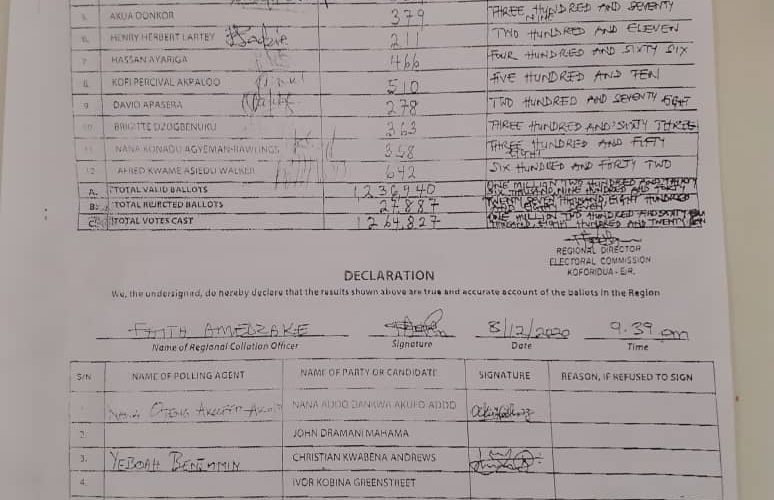 5. AKUA DONKOR 379 THREE HUNDRED AND SEVENTY NINE
6. HENRY HERBERT LARTEY 211 TWO HUNDRED AND ELEVEN
7 HASSAN AYARIGA 466 FOUR HUNDRED AND SIXTY SIX
8. KOFI PERCIVAL AKPALOO 510 FIVE HUNDRED AND TEN
9 DAVID APASERA 278 TWO HUNDRED AND SEVENTY EIGHT
10 BRIGITTE DZOGBENUKU 363 THREE HUNDRED AND SIXTY THREE
11 NANA KONADU AGYEMAN-RAWLINGS 358 THREE HUNDRED AND FIFTY EIGHT
12 AFRED KWAME ASIEDU WALKER 642 SIX HUNDRED AND FORTY TWO
A. TOTAL VALID BALLOTS 1,236,940 ONE MILLION TWO HUNDRED AND THIRTY SIX THOUSAND, NINE HUNDRED AND FORTY
B. TOTAL REJECTED BALLOTS 27,887 TWENTY SEVEN THOUSAND, EIGHT HUNDRED AND EIGHTY SEVEN
TOTAL VOTES CAST 1,264,827 ONE MILLION TWO HUNDRED AND SIXTY THOUSAND, EIGHT HUNDRED AND TWENTY
REGIONAL DIRECTOR
ELECTORAL COMMISSION
KOFORIDUA - E/R.
DECLARATION
We, the undersigned, do hereby declare that the results shown above are true and accurate account of the ballots in the Region
FAITH AMEDZAKE 8/12/2020 9.39 pm
Name of Regional Collation Officer Signature Date Time
S/N NAME OF POLLING AGENT NAME OF PARTY OR CANDIDATE SIGNATURE REASON, IF REFUSED TO SIGN
1 NANA NANA ADDO DANKWA AKUFO-ADDO
2. JOHN DRAMANI MAHAMA
3. YEBOAH BENJAMIN CHRISTIAN KWABENA ANDREWS
4. IVOR KOBINA GREENSTREET